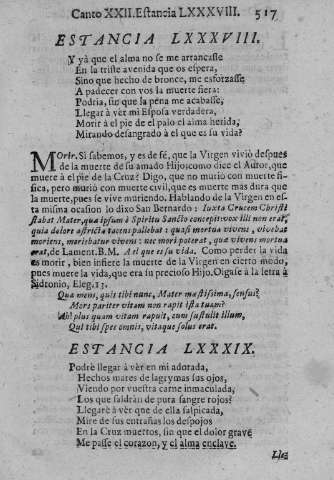 Canto XXII. Estancia LXXXVIII. 517
ESTANCIA LXXXVIII.
Y yà que el alma no se me arrancasse
En la triste avenida que os espera,
Sino que hecho de bronce, me esforzasse
A padecer con vos la muerte fiera:
Podria, sin que la pena me acabasse,
Llegar à vèr mi Esposa verdadera,
Morir à el pie de el palo el alma herida,
Mirando desangrado à el que es su vida?
Morir. Si sabemos, y es de fé, que la Virgen viviò despues
de la muerte de su amado Hijo: como dice el Autor, que
muere à el pie de la Cruz? Digo, que no murio con muerte fi-
sica, pero murió con muerte civil, que es muerte mas dura que
la muerte, pues se vive muriendo. Hablando de la Virgen en es-
ta misma ocasion lo dixo San Bernardo: Iuxta Crucem Christi
stabat Mater, qua ipsum à Spiritu Sancto concepit: vox illi non erat,
quia dolore astricta tacens pallebat: quasi mortua vivens, vivebat
moriens, moriebatur vivens: nec mori poterat, qua vivens mortua
erat, de Lament. B. M. A el que es su vida. Como perder la vida
es morir, bien infiere la muerte de la Virgen en cierto modo,
pues muere la vida, que era su precioso Hijo. Oigase à la letra à
Sidronio, Eleg. 13.
Qua mens, quis tibi nunc, Mater mæstissima, sensus?
Mors pariter vitam non rapit ista tuam?
Ah! plus quam vitam rapuit, cum sustulit illum,
Qui tibi spes omnis, vitaque solus erat.
ESTANCIA LXXXIX.
Podrè llegar à vèr en mi adorada,
Hechos mares de lagrymas sus ojos,
Viendo por vuestra carne inmaculada,
Los que saldràn de pura sangre rojos?
Llegarè à vèr que de ella salpicada,
Mire de sus entrañas los despojos
En la Cruz muertos, sin que el dolor grave
Me passe el corazon, y el alma enclave.
Lle-